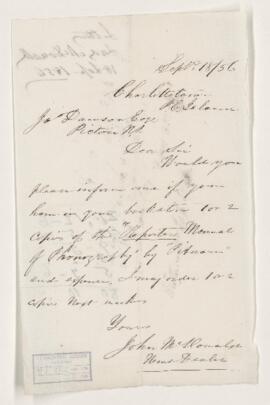 Sept. 18/56
Charlottetown
P. E. Island
Jas Dawson Esqr
Pictou N.S.
Dear Sir
Would you
please inform me if you
have in your bookstore 1 or 2
copies of the "Reporters Manual
of Phonography" by "Pitman"
and expense, I may order 1 or 2
copies next week
Yours
John McDonald
News Dealer